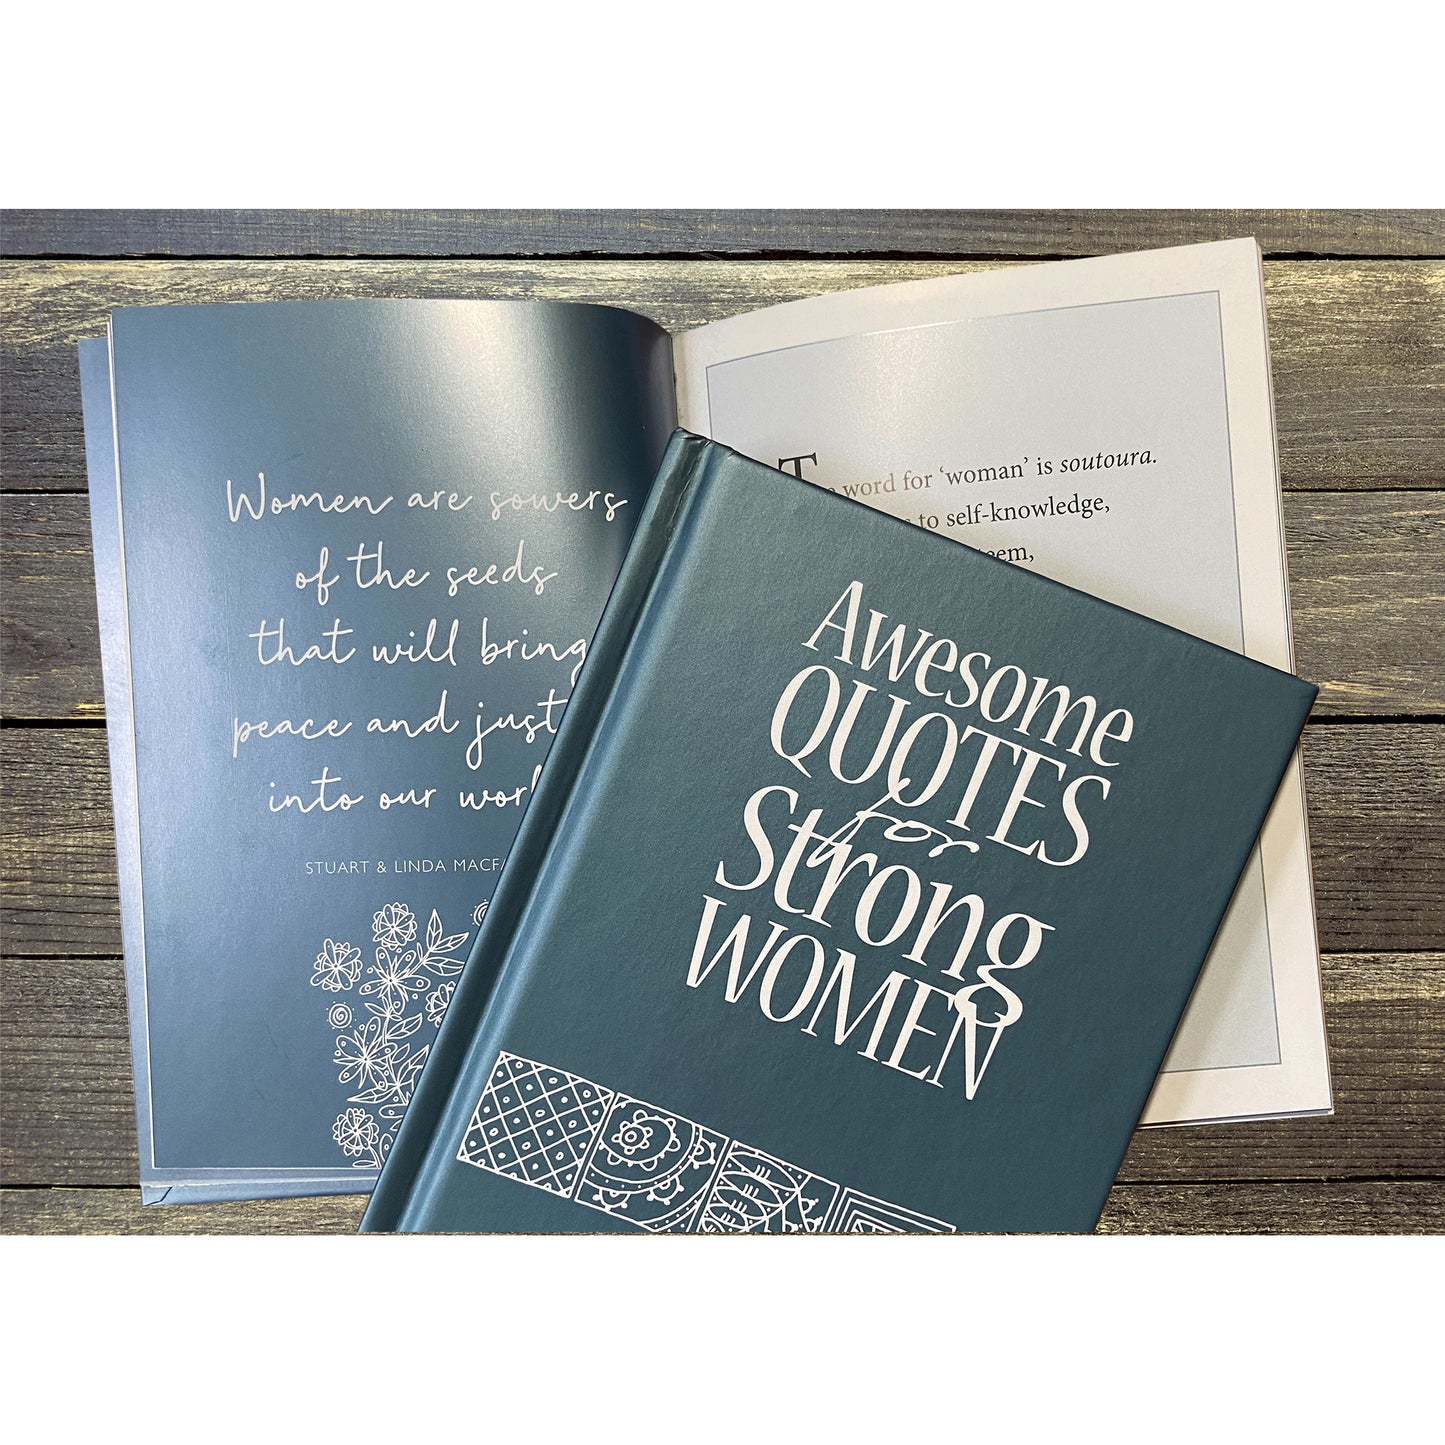 Women are sowers
of the seeds
that will bring
peace and just
into our wor
STUART & LINDA MACF
word for ‘woman’ is soutoura.
to self-knowledge,
Awesome
QUOTES
for
Strong
WOMEN